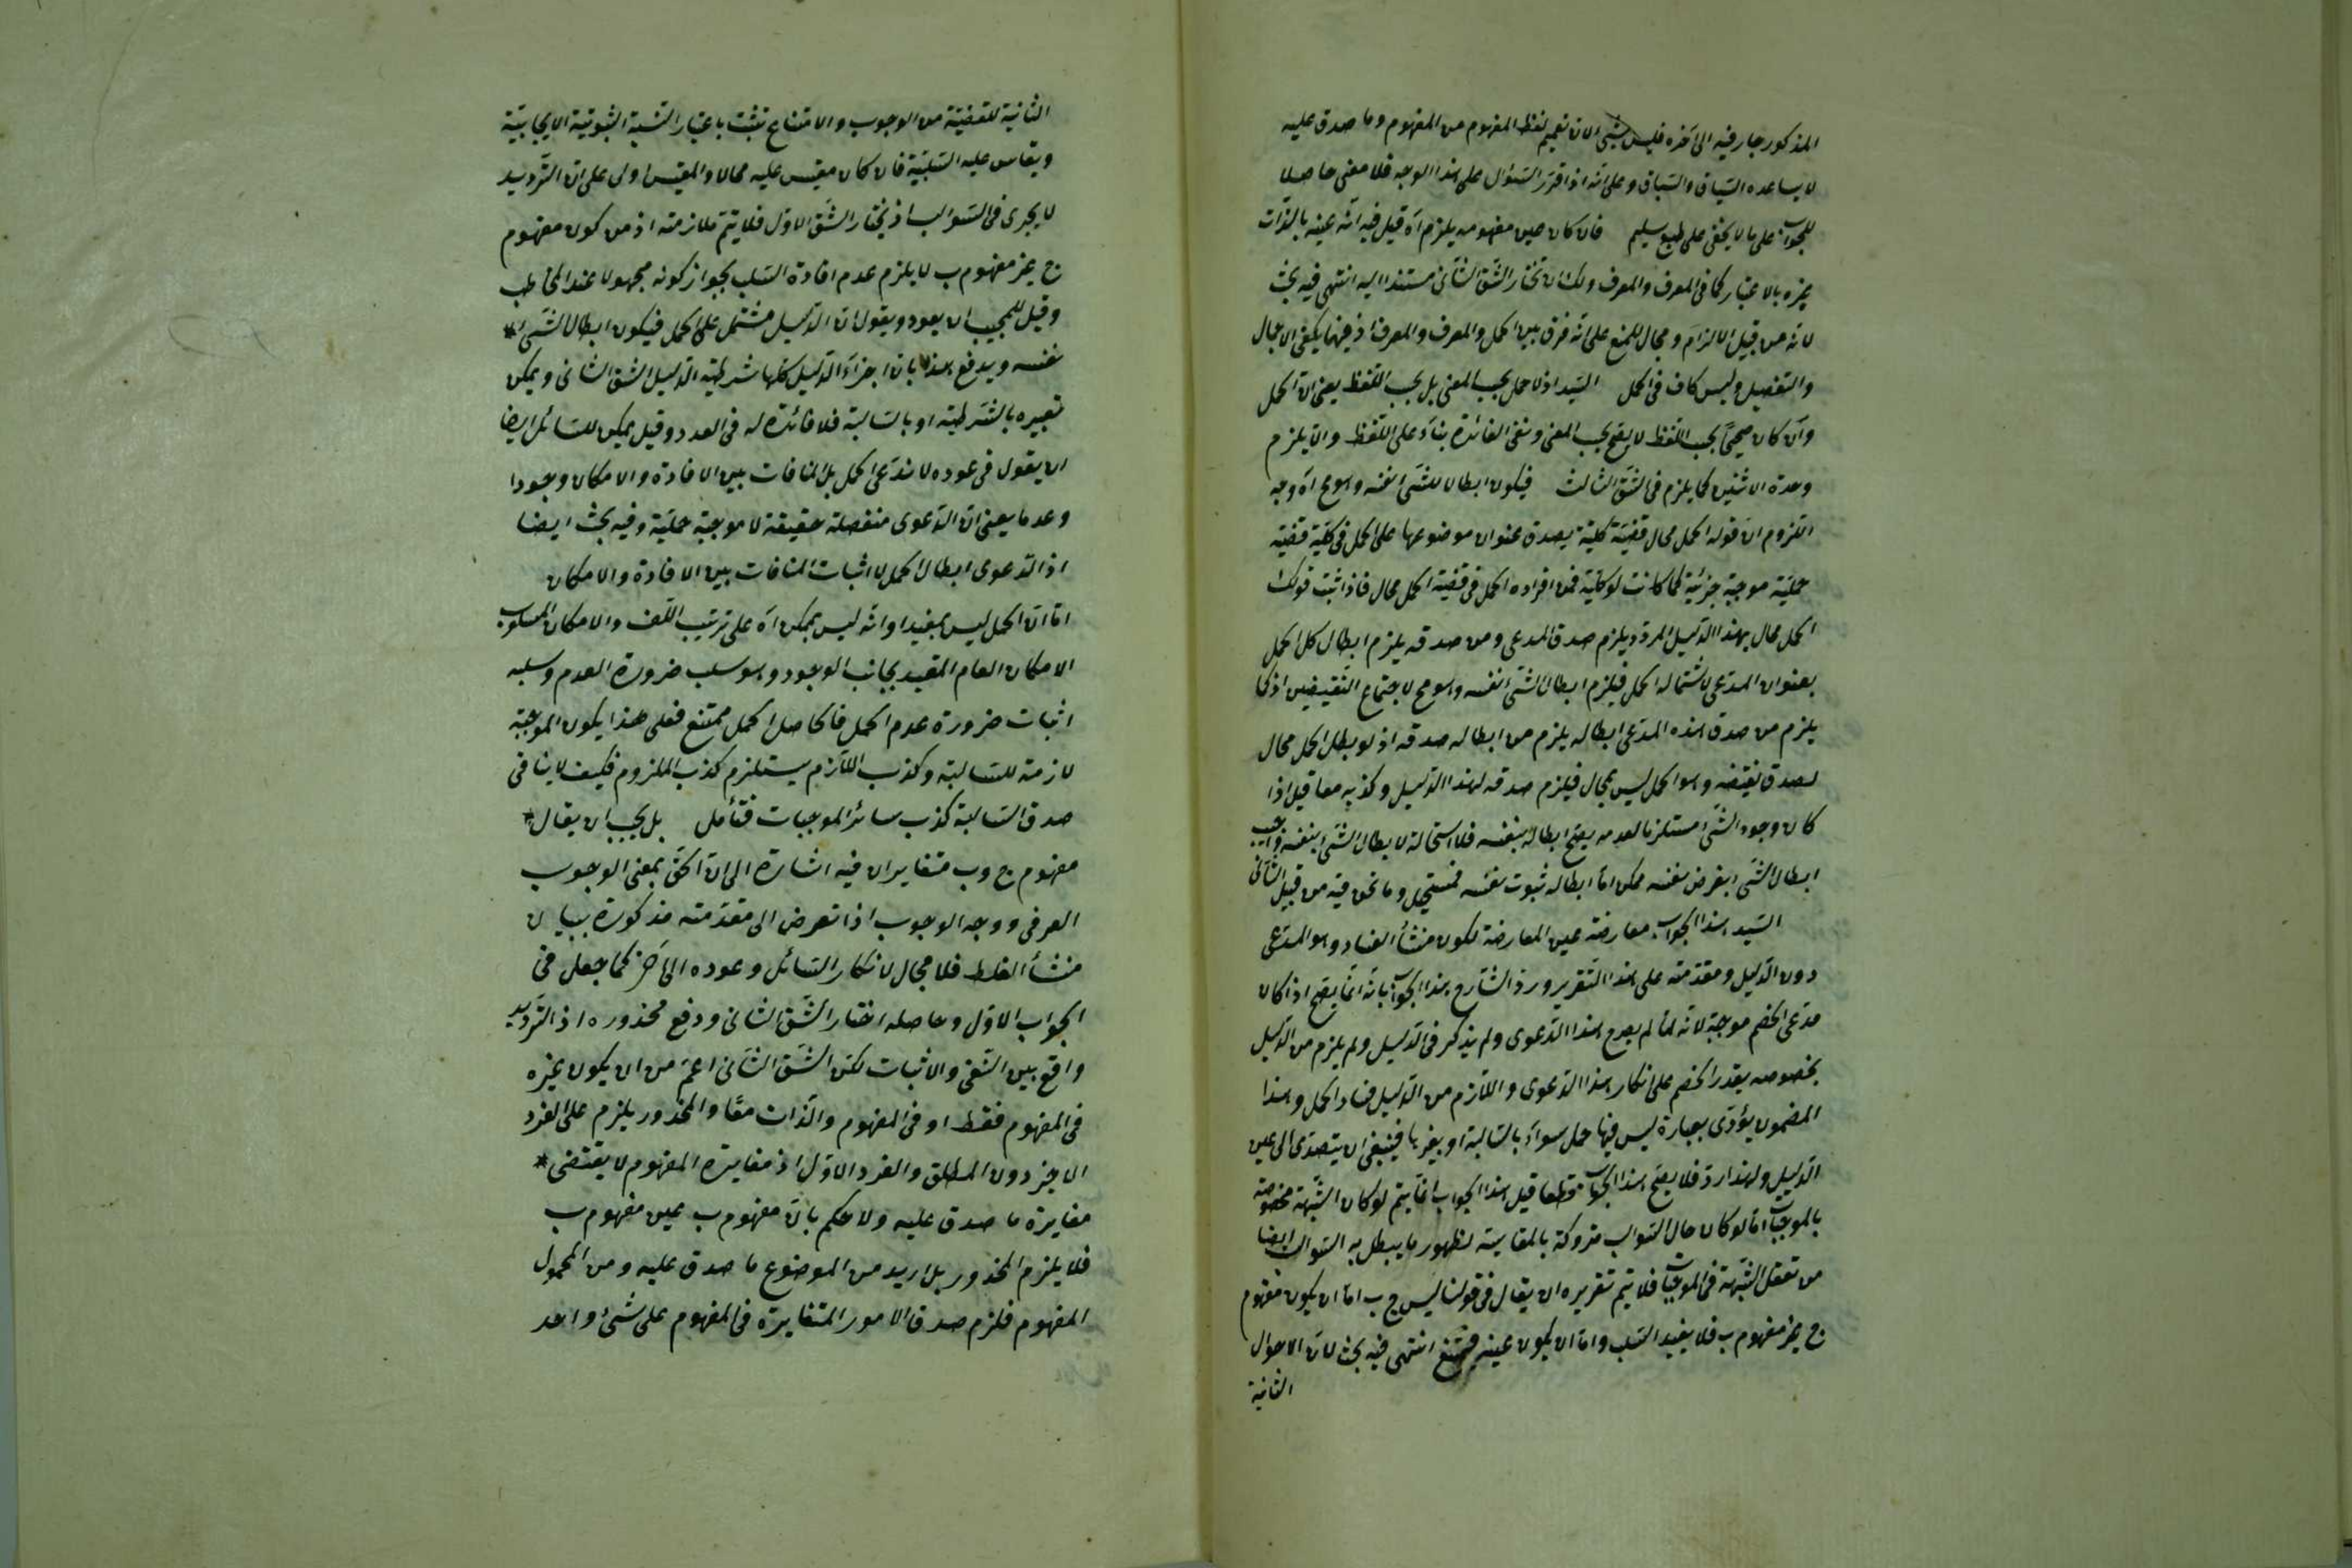 المذكور جار فيه الى آخره فليس بشئ الا ان تعميم لفظ المفهوم من المفهوم وما صدق عليه
لا يساعده السياق والسباق وعلى انه اذا قرر السؤال على هذا الوجه فلا معنى حاصلا
للجواب على ما لا يخفى على طبع سليم فان كان عين مفهومه يلزم آه قيل فيه انه عينه بالذات
غيره بالاعتبار كما فى المعرف والمعرف ولك ان تختار الشق الثانى مستندا اليه انتهى فيه بحث
لانه من قبيل الالزام ومجال للمنع على انه فرق بين الحمل والمعرف والمعرف اذ فيهما يكفى الاجمال
والتفصيل وليس كاف فى الحمل السيد اذ لا حمل بحسب المعنى بل بحسب اللفظ يعنى ان الحمل
وان كان صحيحا بحسب اللفظ لا يقع بحسب المعنى ونفى الفائدة بناء على اللفظ والا يلزم
وحدة الاثنين كما يلزم فى الشق الثالث فيكون ابطالا للشئ بنفسه وهو مح آه وجه
اللزوم ان قوله الحمل محال قضية كلية يصدق عنوان موضوعها على الحمل فى كلية قضية
حملية موجبة جزئية كما كانت لو كلية فمن افراده الحمل فى قضية الحمل محال فاذا ثبت قولك
الحمل محال بهذا الدليل المردد يلزم صدق المدعى ومن صدقه يلزم ابطال كل الحمل
بعنوان المدعى لاشتماله الحمل فيلزم ابطال الشئ بنفسه وهو مح لاجتماع النقيضين اذ كما
يلزم من صدق هذه المدعى ابطاله يلزم من ابطاله صدقه اذ لو بطل الحمل محال
لصدق نقيضه وهو الحمل ليس بمحال فيلزم صدقه لهذا الدليل وكذبه معا قيل اذا
كان وجود الشئ مستلزما لعدمه يصح ابطاله بنفسه فلا استحالة لابطال الشئ بنفسه واجيب
ابطال الشئ بفرض نفسه ممكن اما ابطاله ثبوت نفسه فمستحيل وما نحن فيه من قبيل الثانى
السيد هذا الجواب معارضة عين المعارضة لكون منشأ الفساد وهو المدعى
دون الدليل ومقدمته على هذا التقرير ورد الشارح هذا الجواب بانه انما يصح اذا كان
مدعى الخصم موجبة لانه لما لم يصرح هذا الدعوى ولم يذكر فى الدليل ولم يلزم من الدليل
بخصوصه يقدر الخصم على انكار هذا الدعوى واللازم من الدليل فساد الحمل وهذا
المضمون يؤدى بعبارة ليس فيها حمل سواء بالسالبة او بغيرها فينبغى ان يتصدى الى عين
الدليل ولهذا رد فلا يصح هذا الجواب قطعا قيل هذا الجواب انما يتم لو كان الشبهة مخصوصة
بالموجبات اما لو كان حال السوالب متروكة بالمقايسة لظهور ما يبطل به السوالب ايضا
من تعقل الشبهة فى الموجبات فلا يتم تقريره ان يقال فى قولنا ليس ج ب اما ان يكون مفهوم
ج غير مفهوم ب فلا يفيد السلب واما ان يكون عينه فيمتنع انتهى فيه بحث لان الاحوال
الثانية
الثانية للقضية من الوجوب والامتناع تثبت باعتبار النسبة الثبوتية الايجابية
ويقاس عليه السلبية فان كان مقيس عليه محالا والمقيس اولى على ان الترديد
لا يجرى فى السوالب اذ يختار الشق الاول فلا يتم ملازمته اذ من كون مفهوم
ج غير مفهوم ب لا يلزم عدم افادة السلب بجواز كونه مجهولا عند المخاطب
وقيل للمجيب ان يعود ويقول ان الدليل مشتمل على الحمل فيكون ابطالا للشئ
نفسه ويدفع هذا بان اجزاء الدليل كلها شرطية الدليل الشق الثانى ويمكن
تعبيره بالشرطية او بالسالبة فلا فائدة له فى العدد وقيل يمكن للسائل ايضا
ان يقول فى عوده لا ندعى الحمل بل المنافات بين الافادة والامكان وجودا
وعدما يعنى ان الدعوى منفصلة حقيقة لا موجبة حملية وفيه بحث ايضا
اذ الدعوى ابطال الحمل لا اثبات المنافات بين الافادة والامكان
اما ان الحمل ليس بمفيد او انه ليس بممكن آه على ترتيب اللف والامكان المسلوب
الامكان العام المقيد بجانب الوجود وهو سلب ضرورة العدم وسلبه
اثبات ضرورة عدم الحمل فالحاصل الحمل ممتنع فعلى هذا يكون الموجبة
لازمة للسالبة وكذب اللازم يستلزم كذب الملزوم فكيف لا ينافى
صدق السالبة كذب سائر الموجبات فتأمل بل يجب ان يقال
مفهوم ج وب متغايران فيه اشارة الى ان الحق بمعنى الوجوب
العرفى ووجه الوجوب اذا تعرض الى مقدمته مذكورة ببيان
منشأ الغلط فلا مجال لانكار السائل وعوده الى آخر كما جعل فى
الجواب الاول وحاصله اختار الشق الثانى ودفع محذوره اذ الترديد
واقع بين النفى والاثبات لكن الشق الثانى اعم من ان يكون غيره
فى المفهوم فقط او فى المفهوم والذات معا والمحذور يلزم على الفرد
الاخير دون المطلق والفرد الاول اذ مغايرة المفهوم لا يقتضى
مغايرة ما صدق عليه ولا حكم بان مفهوم ب عين مفهوم ب
فلا يلزم المحذور بل اريد من الموضوع ما صدق عليه ومن المحمول
المفهوم فلزم صدق الامور المتغايرة فى المفهوم على شئ واحد